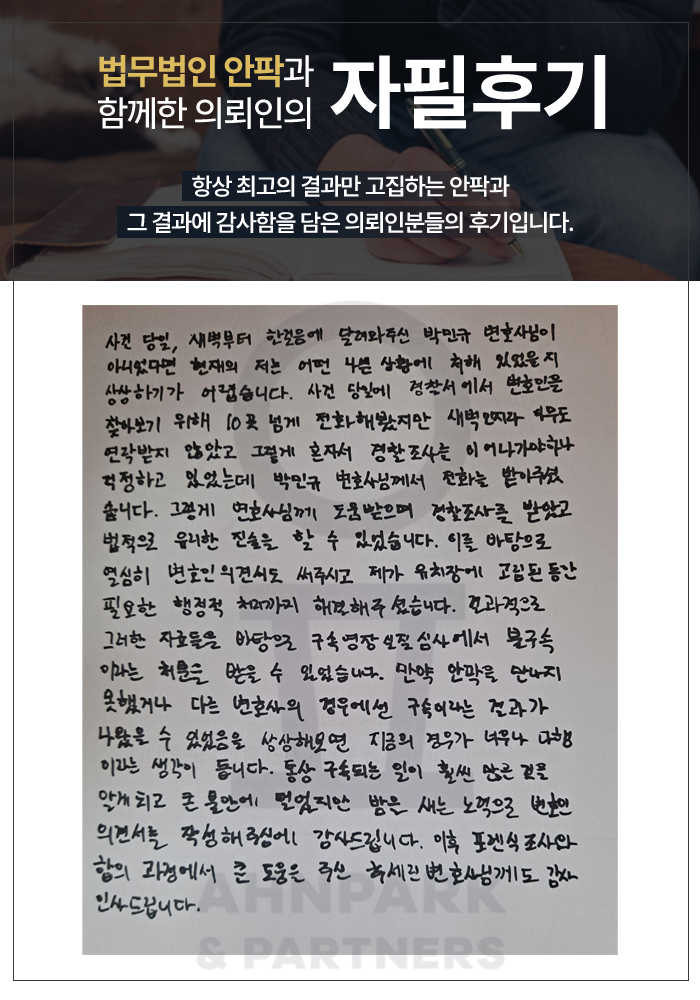 법무법인 안팍과
함께한 의뢰인의
자필후기
항상 최고의 결과만 고집하는 안팍과
그 결과에 감사함을 담은 의뢰인분들의 후기입니다.
사건 당일, 새벽부터 한걸음에 달려와주신 박민규 변호사님이
아니었다면 현재의 저는 어떤 나쁜 상황에 처해 있었을지
상상하기가 어렵습니다. 사건 당일에 경찰서에서 변호인을
찾아보기 위해 10곳 넘게 전화해봤지만 새벽인지라 아무도
연락받지 않았고 그렇게 혼자서 경찰조사는 이어나가야하나
걱정하고 있었는데 박민규 변호사님께서 전화를 받아주셨
습니다. 그렇게 변호사님께 도움받으며 경찰조사를 받았고
법적으로 유리한 진술을 할 수 있었습니다. 이를 바탕으로
열심히 변호인의견서도 써주시고 제가 유치장에 고립된 동안
필요한 행정적 처리까지 해결해주셨습니다. 결과적으로
그러한 자료들을 바탕으로 구속영장실질심사에서 불구속
이라는 처분을 받을 수 있었습니다. 만약 안팍을 만나지
못했거나 다른 변호사의 경우에선 구속이라는 결과가
나왔을 수 있었음을 상상해보면 지금의 경우가 너무나 다행
이라는 생각이 듭니다. 통상 구속되는 일이 훨씬 많은 것을
알게되고 큰 불안에 떨었지만 밤을 새는 노력으로 변호인
의견서를 작성해주심에 감사드립니다. 이후 포렌식조사와
합의 과정에서 큰 도움을 주신 추세린변호사님께도 감사
인사드립니다.
AHNPARK
& PARTNERS